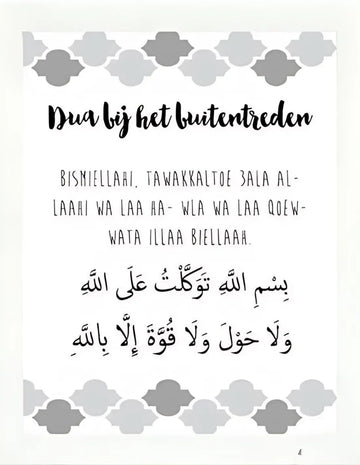 Dua bij het buitentreden
BISMIELLAHI, TAWAKKALTOE 3ALA AL-
LAAHI WA LAA HA- WLA WA LAA QOEW-
WATA ILLAA BIELLAAH.
بِسْمِ اللَّهِ تَوَكَّلْتُ عَلَى اللَّهِ
وَلَا حَوْلَ وَلَا قُوَّةَ إِلَّا بِاللَّهِ